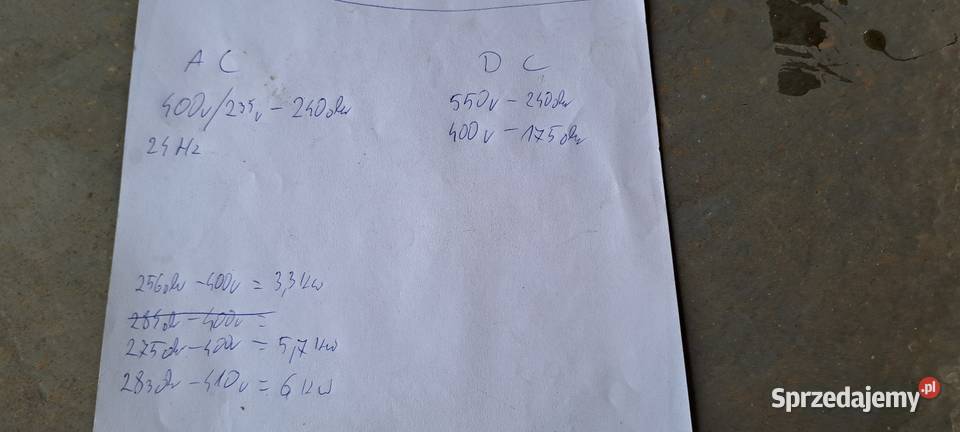 AC
400v/235v - 240obr
24Hz
DC
550v - 240obr
400v - 175obr
256obr - 400v = 3,3kw
284obr - 400v =
275obr - 400v = 5,7kw
283obr - 410v = 6kw
Sprzedajemy.pl